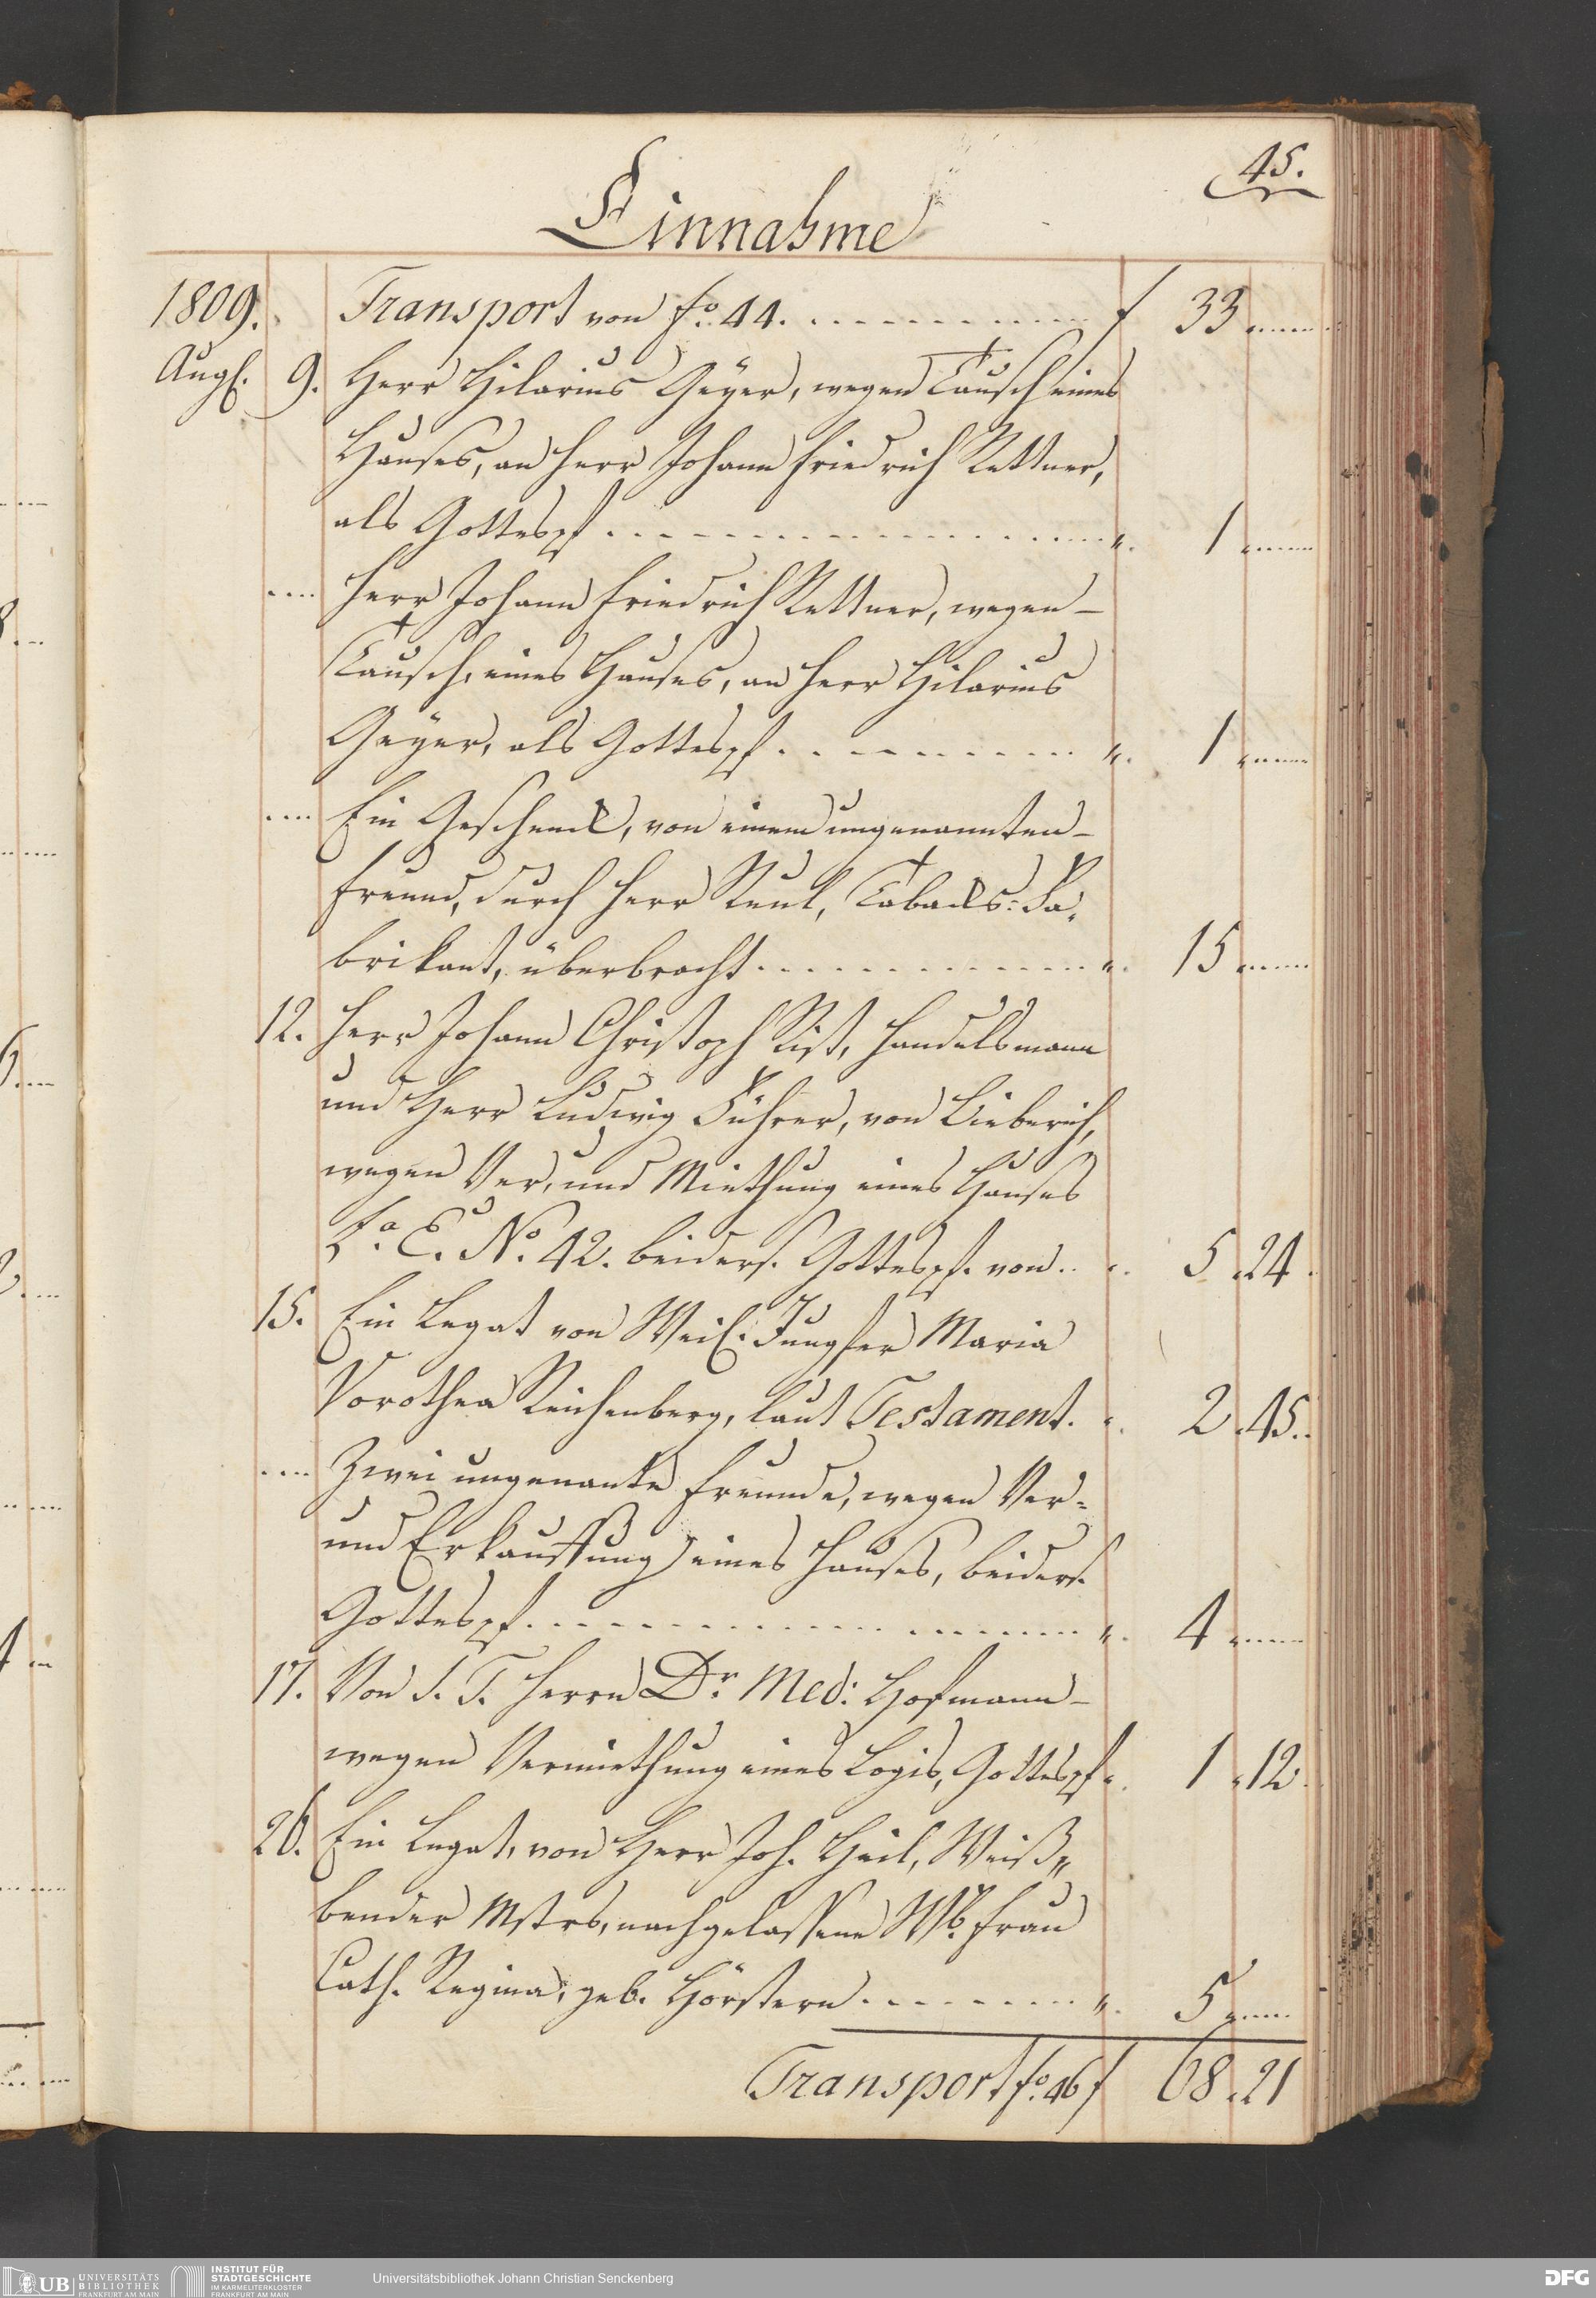 45.
Einnahme
1809. Transport von fo. 44. . . . . . . . . . . f 33 ......
Augs. 9. Herr Hilarius Geÿer, wegen Tausch eines
Hauses, an Herr Johann Friedrich Rettner,
als Gottespf. . . . . . . . . . . . . . . . . ". 1 ......
.... Herr Johann Friedrich Rettner, wegen
Tausch, eines Hauses, an Herr Hilarius
Geÿer, als Gottespf. . . . . . . . . . . ". 1 ......
.... Ein Geschenck, von einem ungenannten
Freund, durch Herr Reul, Tabacks=Fa,
brikant, überbracht. . . . . . . . . . . . ". 15 ......
12. Herr Johann Christoph Rist, Handelsmann
und Herr Ludwig Führer, von Bieberich,
wegen Ver, und Miethung eines Hauses
La. E. No. 42. beiders. Gottespf. von. . ". 5 .24.
15. Ein Legat von Weil. Jungfer Maria
Dorothea Reichenberg, laut Testament. ". 2 .45.
.... Zwei ungenante Freunde, wegen Ver=
und Erkauffung eines Hauses, beiders.
Gottespf. . . . . . . . . . . . . . . . . . ". 4 ......
17. Von S. T. Herrn Dr. Med: Hofmann
wegen Vermiethung eines Logis, Gottespf ". 1 .12.
26. Ein Legat, von Herr Joh. Heil, Weiß„
bender Mstrs, nachgelassene Wb. Frau
Cath. Regina, geb. Hörstern. . . . . . . . ". 5 ......
Transport fo. 46 f 68 .21
UB UNIVERSITÄTS
BIBLIOTHEK
FRANKFURT AM MAIN
INSTITUT FÜR
STADTGESCHICHTE
IM KARMELITERKLOSTER
FRANKFURT AM MAIN
Universitätsbibliothek Johann Christian Senckenberg
DFG